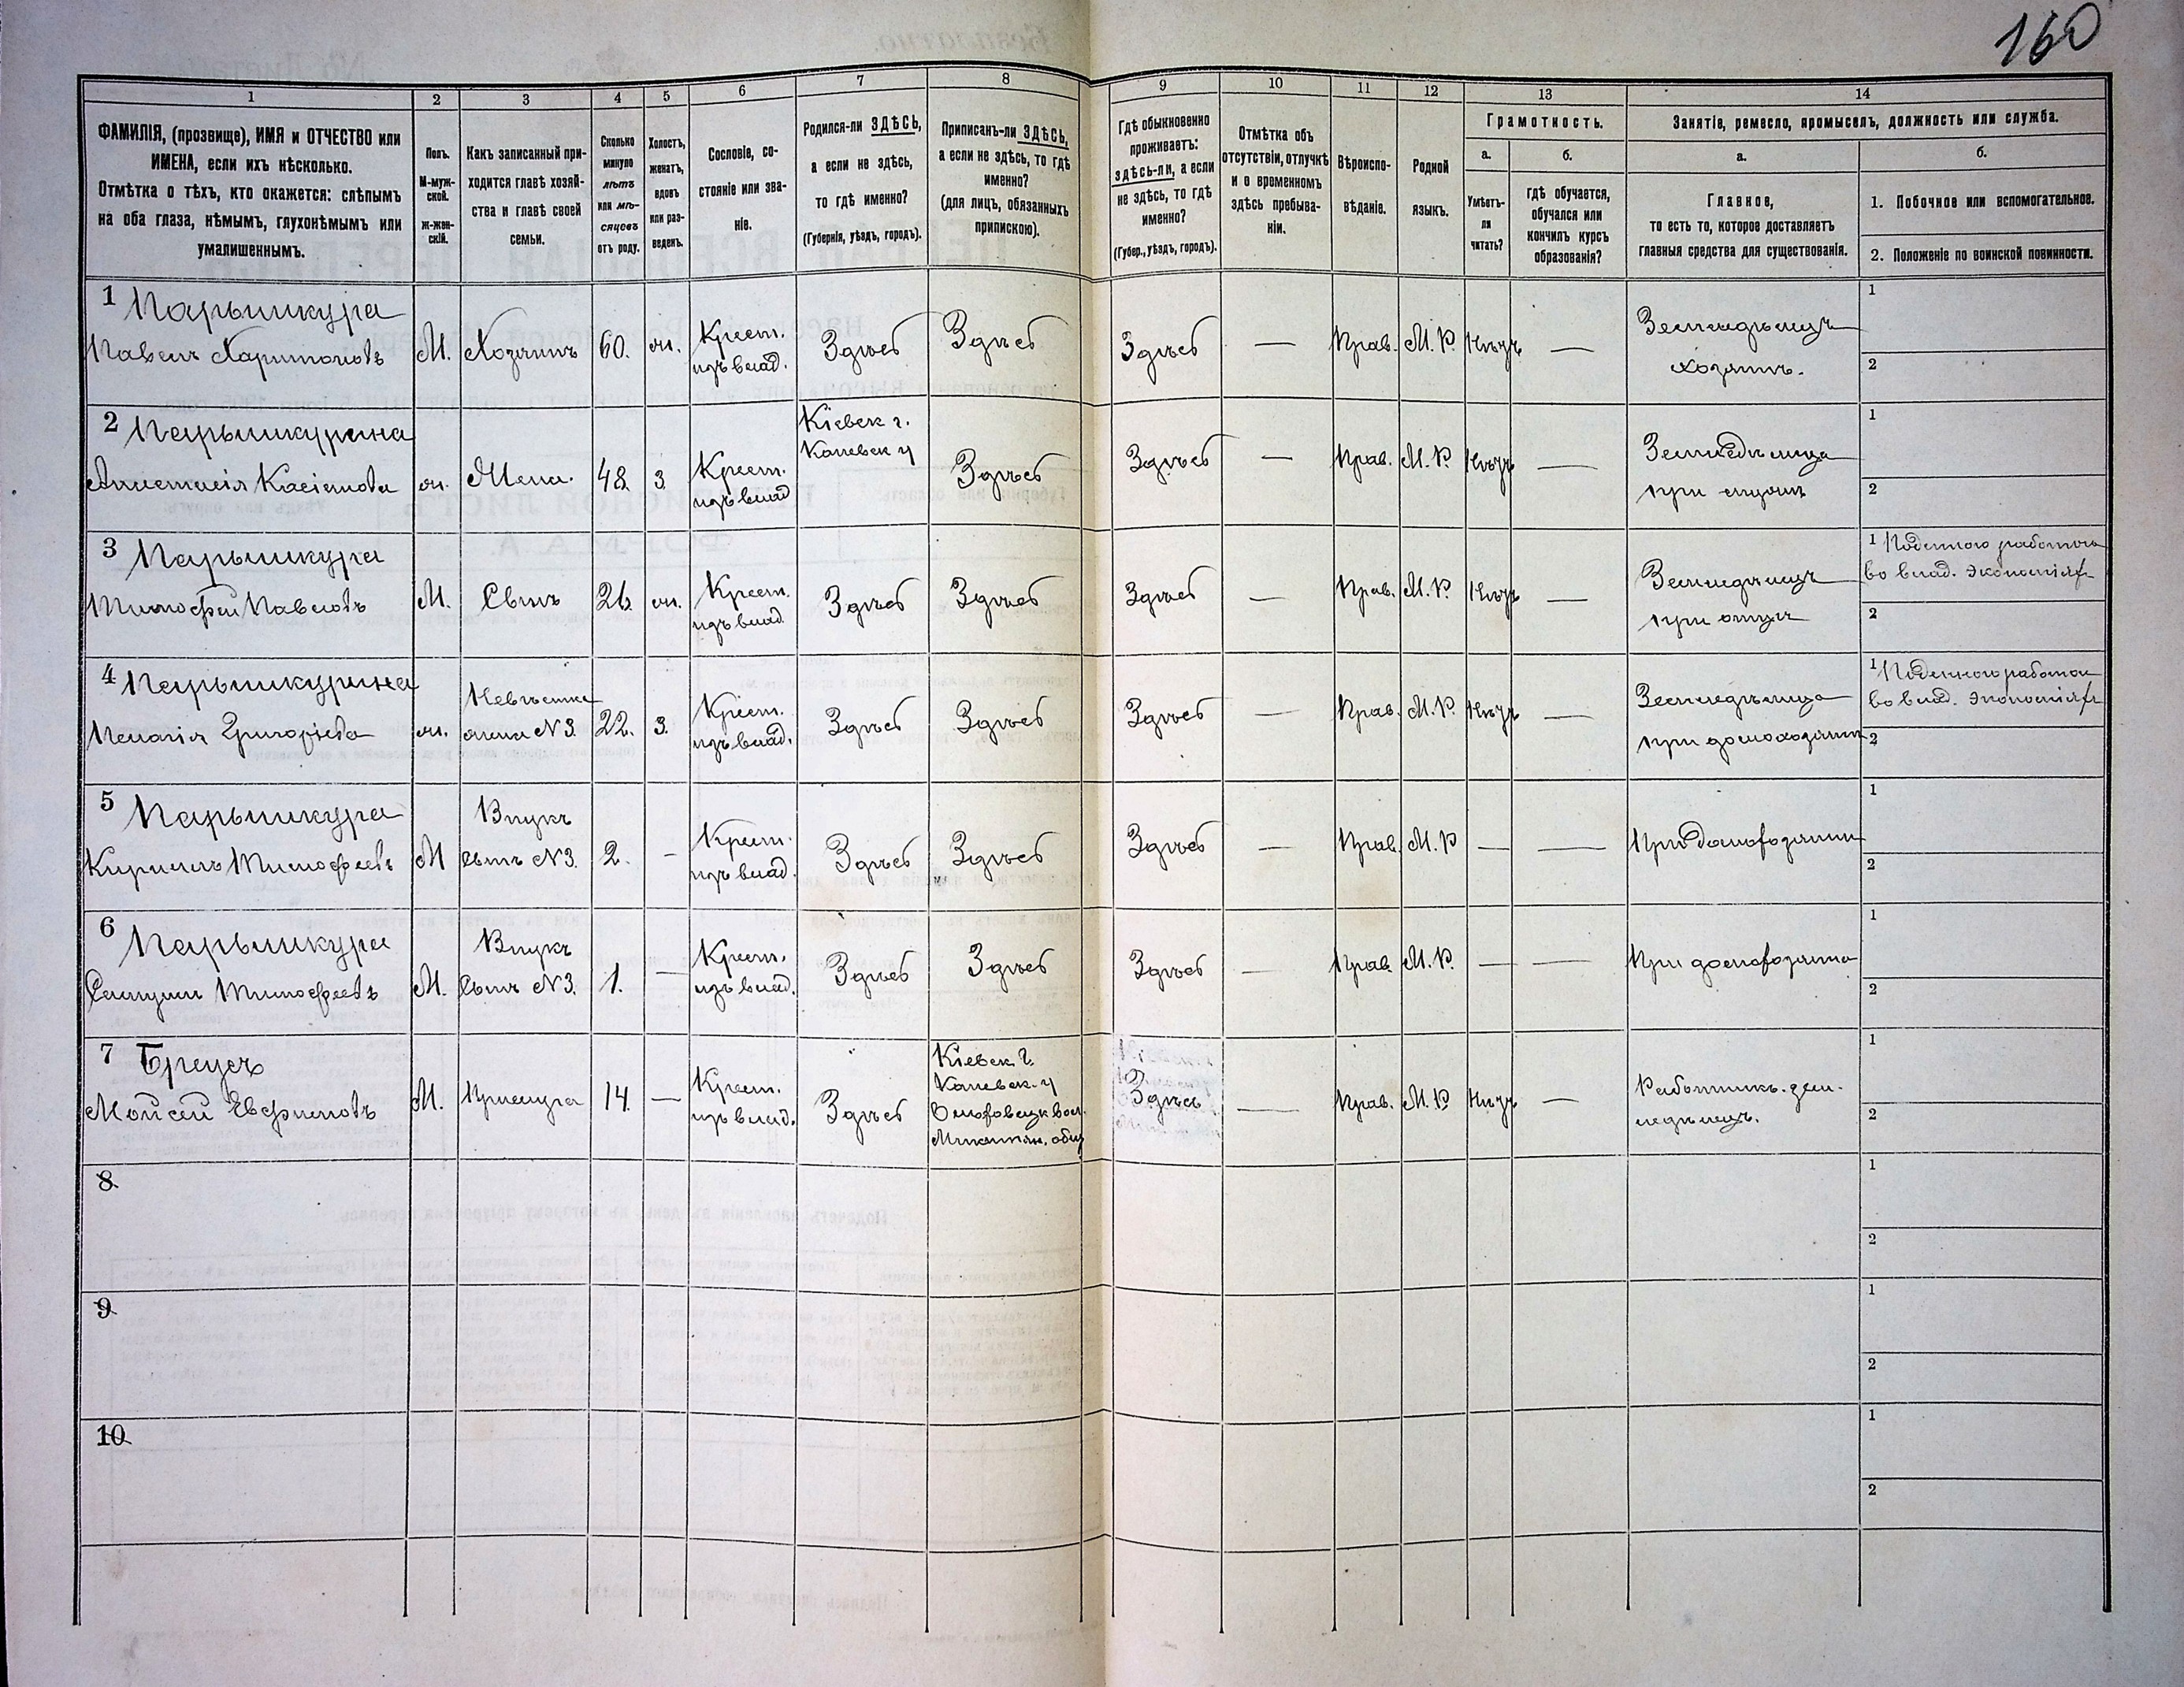 160
1 2 3 4 5 6 7 8 9 10 11 12 13 14
ФАМИЛІЯ, (прозвище), ИМЯ и ОТЧЕСТВО или
ИМЕНА, если ихъ нѣсколько.
Отмѣтка о тѣхъ, кто окажется: слѣпымъ
на оба глаза, нѣмымъ, глухонѣмымъ или
умалишеннымъ.
Полъ.
М-муж-
ской.
ж-жен-
скій.
Какъ записанный при-
ходится главѣ хозяй-
ства и главѣ своей
семьи.
Сколько
минуло
лѣтъ
или мѣ-
сяцевъ
отъ роду.
Холостъ,
женатъ,
вдовъ
или раз-
веденъ.
Сословіе, со-
стояніе или зва-
ніе.
Родился-ли ЗДѢСЬ,
а если не здѣсь,
то гдѣ именно?
(Губернія, уѣздъ, городъ).
Приписанъ-ли ЗДѢСЬ,
а если не здѣсь, то гдѣ
именно?
(для лицъ, обязанныхъ
припискою).
Гдѣ обыкновенно
проживаетъ:
здѣсь-ли, а если
не здѣсь, то гдѣ
именно?
(Губер., уѣздъ, городъ).
Отмѣтка объ
отсутствіи, отлучкѣ
и о временномъ
здѣсь пребыва-
ніи.
Вѣроиспо-
вѣданіе.
Родной
языкъ.
Грамотность.
а.
Умѣетъ-
ли
читать?
б.
гдѣ обучается,
обучался или
кончилъ курсъ
образованія?
Занятіе, ремесло, промыселъ, должность или служба.
а.
Главное,
то есть то, которое доставляетъ
главныя средства для существованія.
б.
1. Побочное или вспомогательное.
2. Положеніе по воинской повинности.
1
Павелъ Харитоновъ
М.
Хозяинъ
60.
ж.
Крест.
изъ влад.
Здѣсь
Здѣсь
Здѣсь
—
Прав.
М. Р.
Нѣтъ
—
Земледѣлецъ
хозяинъ.
1
2
2
Анастасія Касіянова
ж.
Жена.
48.
з.
Крест.
изъ влад.
Кіевск г.
Каневск у
Здѣсь
Здѣсь
—
Прав.
М. Р.
Нѣтъ
—
при мужѣ
1
2
3
Тимофей Павловъ
М.
Сынъ
26.
ж.
Крест.
изъ влад.
Здѣсь
Здѣсь
Здѣсь
—
Прав.
М. Р.
Нѣтъ
—
Земледѣлецъ
при отцѣ
1
во влад. экономіях
2
4
Пелагія Григоріева
ж.
Невѣстка
жена N 3.
22.
з.
Крест.
изъ влад.
Здѣсь
Здѣсь
Здѣсь
—
Прав.
М. Р.
Нѣтъ
—
Земледѣлица
при домохозяин
1
во влад. экономіях
2
5
Кириллъ Тимофеевъ
М
Внукъ
сынъ N 3.
2.
-
Крест.
изъ влад.
Здѣсь
Здѣсь
Здѣсь
—
Прав.
М. Р
—
—
При домохозяин
1
2
6
Тимофеевъ
М.
Внукъ
сынъ N 3.
1.
—
Крест.
изъ влад.
Здѣсь
Здѣсь
Здѣсь
—
Прав.
М. Р.
—
—
При домохозяин
1
2
7
Мойсей Евфимовъ
М.
Прислуга
14.
—
Крест.
изъ влад.
Здѣсь
Кіевск. г.
Каневск. у
Здѣсь
—
Прав.
М. Р
Нѣтъ
—
Работникъ. зем-
ледѣлецъ.
1
2
8
1
2
9
1
2
10
1
2